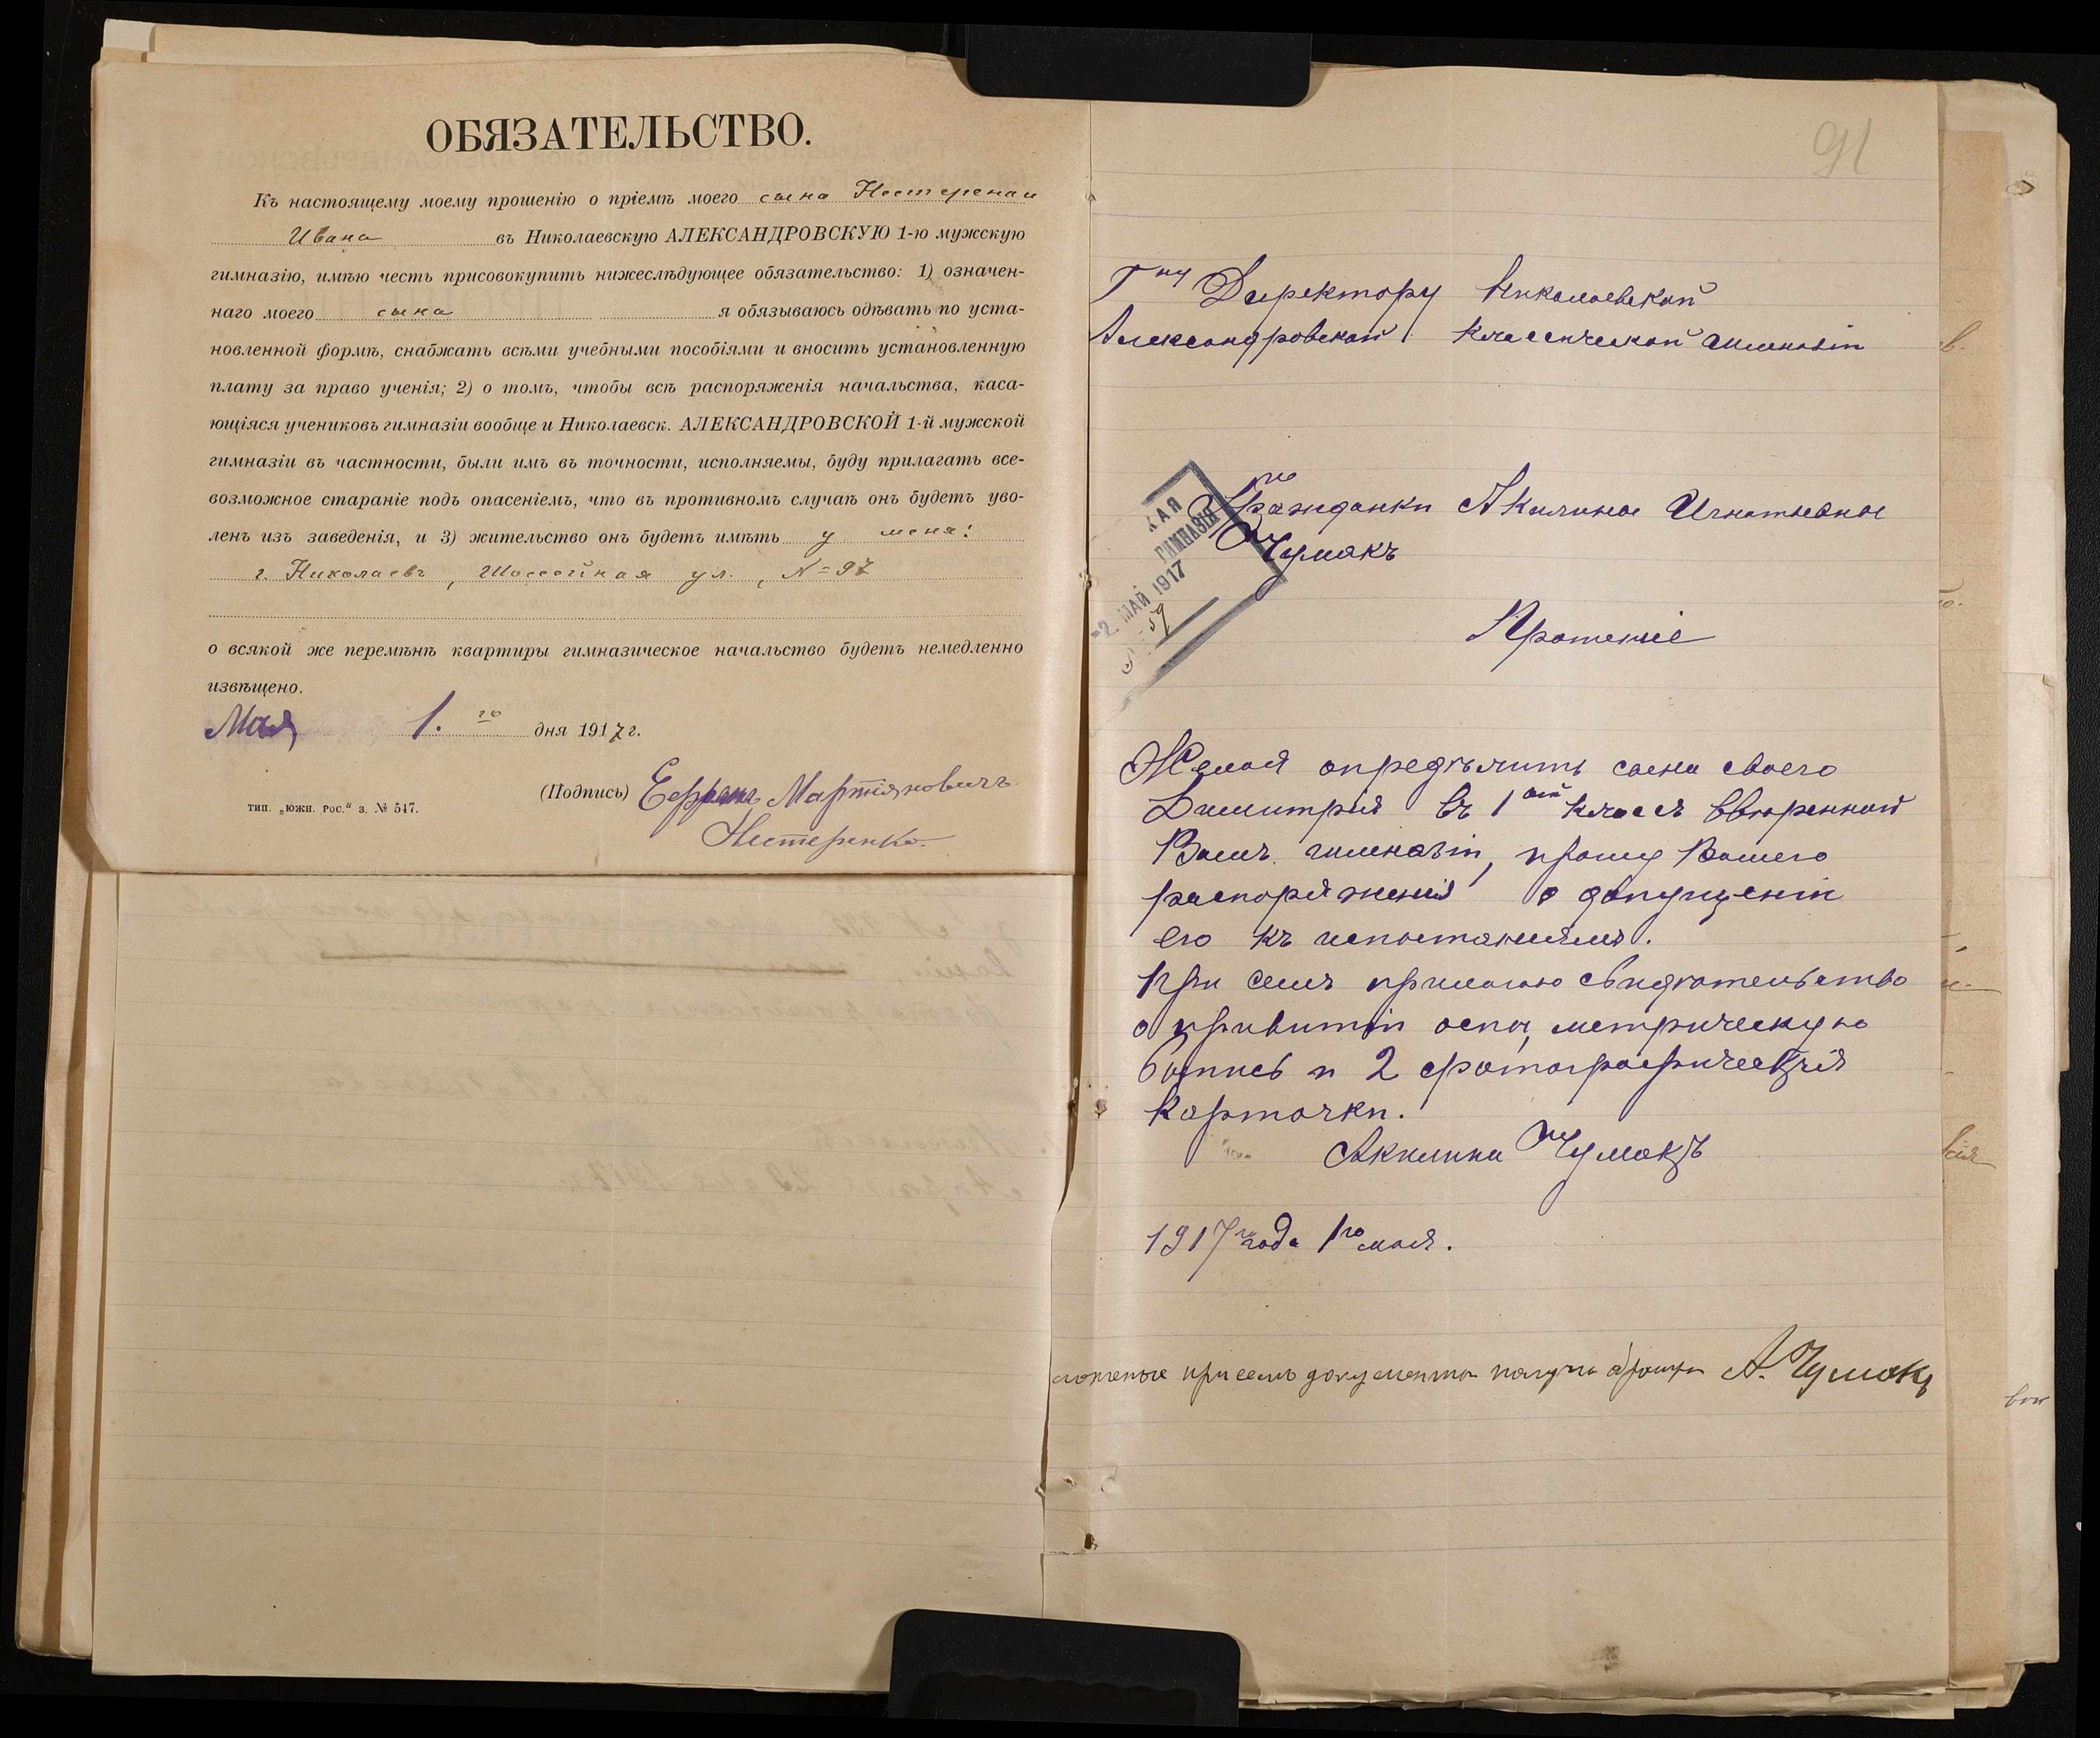 ОБЯЗАТЕЛЬСТВО.
Къ настоящему моему прошенію о пріемѣ моего сына Нестеренаи
Ивана въ Николаевскую АЛЕКСАНДРОВСКУЮ 1-ю мужскую
гимназію, имѣю честь присовокупить нижеслѣдующее обязательство: 1) означен-
наго моего сына я обязываюсь одѣвать по уста-
новленной формѣ, снабжать всѣми учебными пособіями и вносить установленную
плату за право ученія; 2) о томъ, чтобы всѣ распоряженія начальства, каса-
ющіяся учениковъ гимназіи вообще и Николаевск. АЛЕКСАНДРОВСКОЙ 1-й мужской
гимназіи въ частности, были имъ въ точности, исполняемы, буду прилагать все-
возможное стараніе подъ опасеніемъ, что въ противномъ случаѣ онъ будетъ уво-
ленъ изъ заведенія, и 3) жительство онъ будетъ имѣть у меня:
г. Николаевъ, Шоссейная ул., № 97
о всякой же перемѣнѣ квартиры гимназическое начальство будетъ немедленно
извѣщено.
Мая 1. го дня 1917 г.
(Подпись) Ефремъ Мартіяновичъ
Нестеренко.
тип. „южн. рос.“ з. № 547.
91
Гну Директору Николаевской
Александровской Классической гимназіи
КАЯ
ГИМНАЗІЯ
-2 МАЙ 1917
59
Гражданки Акилины Игнатьевны
Чумакъ
Прошеніе
Желая опредѣлить сына своего
Димитрія въ 1ый классъ ввѣренной
Вамъ гимназіи, прошу Вашего
распоряженія о допущеніи
его къ испытаніямъ.
При семъ прилагаю свидѣтельство
о привитіи оспы, метрическую
выпись и 2 фотографическія
карточки.
Акилина Чумакъ
1917го года 1го мая.
при семъ документы А. Чумакъ